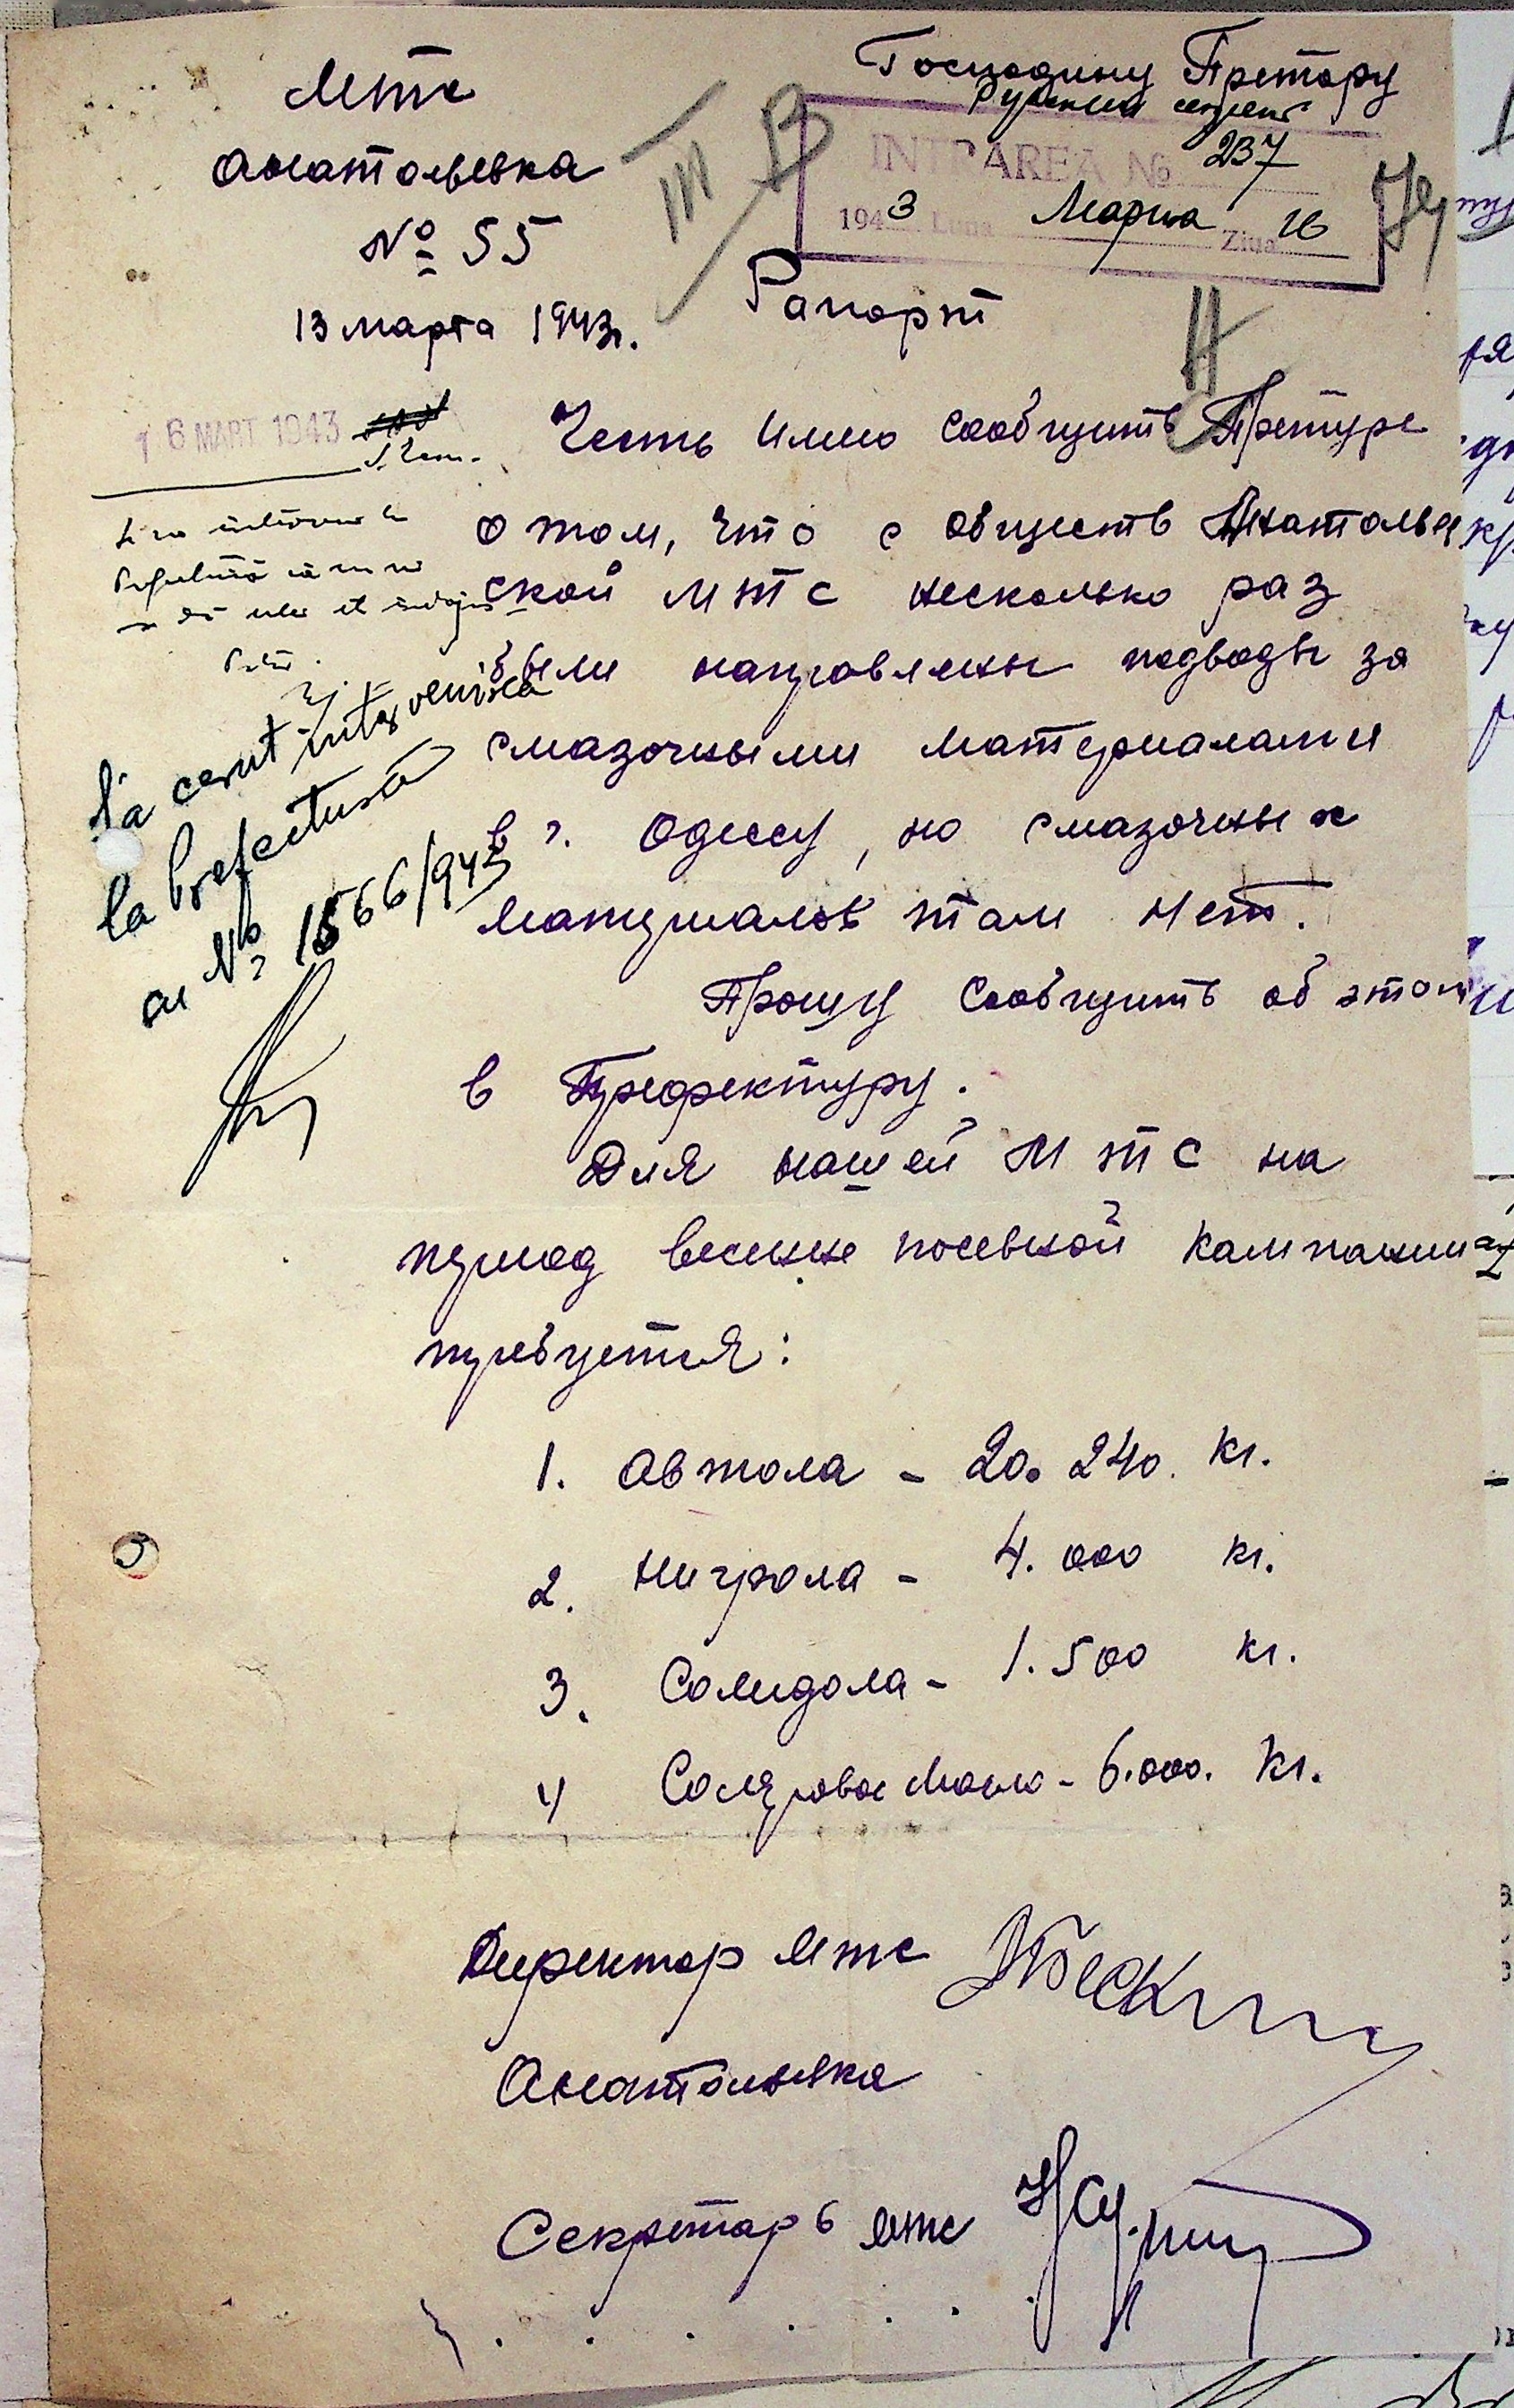 Мтс
Анатольевка
№ 55
13 марта 1943г.
Господину Претору
INTRAREA № 237
1943 Luna Марта Ziua 16
Рапорт
16 МАРТ 1943
Честь имею сообщить Претуре
о том, что с обществ Анатольев
ской МТС несколько раз
были направлены подводы за
смазочными материалами
в г. Одессу, но смазочных
материалов там нет.
Прошу сообщить об этом
в Префектуру.
Для нашей МТС на
период весенне посевной кампании
требуется:
1. Автола - 20.240. кг.
2. Нигрола - 4.000 кг.
3. Солидола - 1.500 кг.
4 Соляровое масло - 6.000. кг.
S'a cerut intervenirea
la prefectură
cu № 1566/943
Директор мтс
Анатольевка
Секретарь мтс